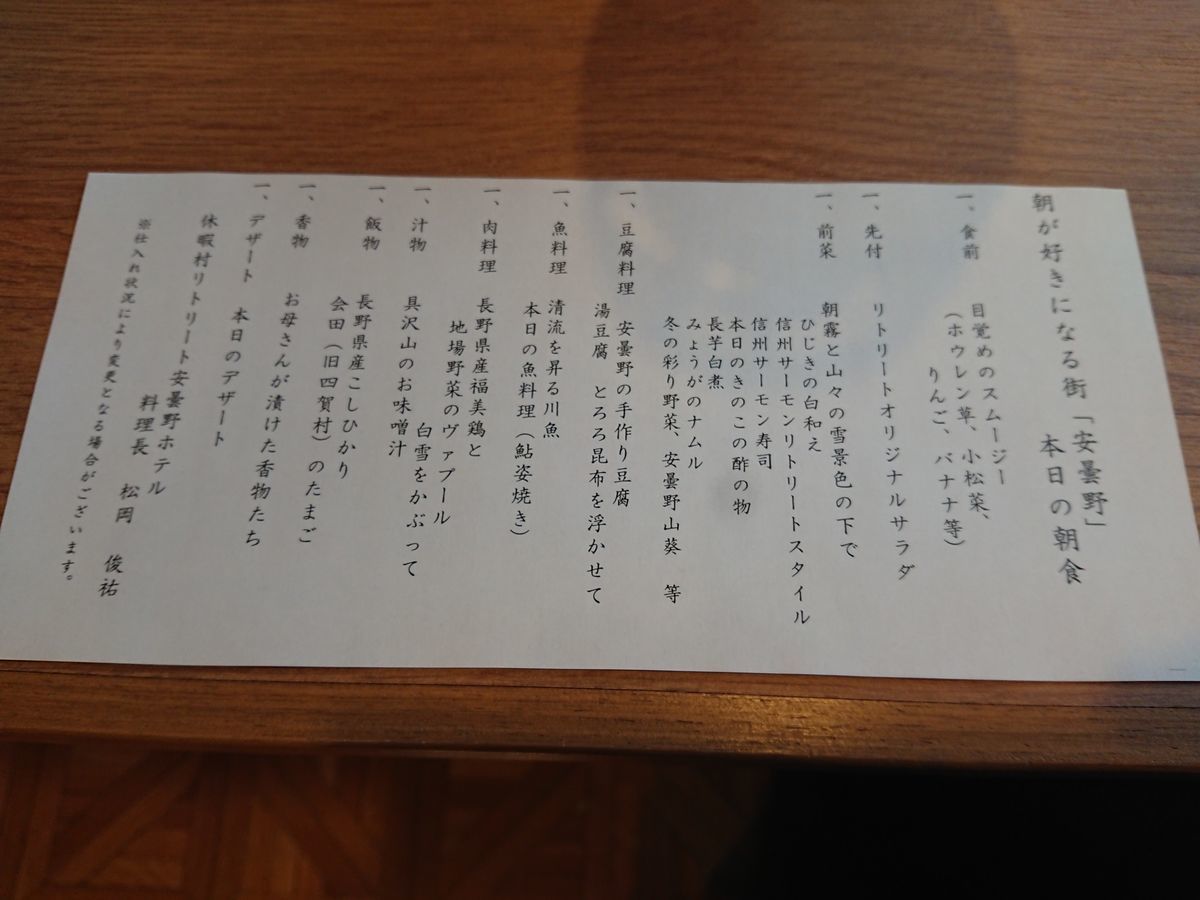 朝が好きになる街「安曇野」
本日の朝食
一、食前
目覚めのスムージー
（ホウレン草、小松菜、
りんご、バナナ等）
一、先付　リトリートオリジナルサラダ
一、前菜　朝霧と山々の雪景色の下で
ひじきの白和え
信州サーモンリトリートスタイル
信州サーモン寿司
本日のきのこの酢の物
長芋白煮
みょうがのナムル
冬の彩り野菜、安曇野山葵　等
一、豆腐料理　安曇野の手作り豆腐
湯豆腐　とろろ昆布を浮かせて
一、魚料理　清流を昇る川魚
本日の魚料理（鮎姿焼き）
一、肉料理　長野県産福美鶏と
地場野菜のヴァプール
白雪をかぶって
一、汁物　具沢山のお味噌汁
一、飯物　長野県産こしひかり
会田（旧四賀村）のたまご
一、香物　お母さんが漬けた香物たち
一、デザート　本日のデザート
休暇村リトリート安曇野ホテル
料理長　松岡　俊祐
※仕入れ状況により変更となる場合がございます。